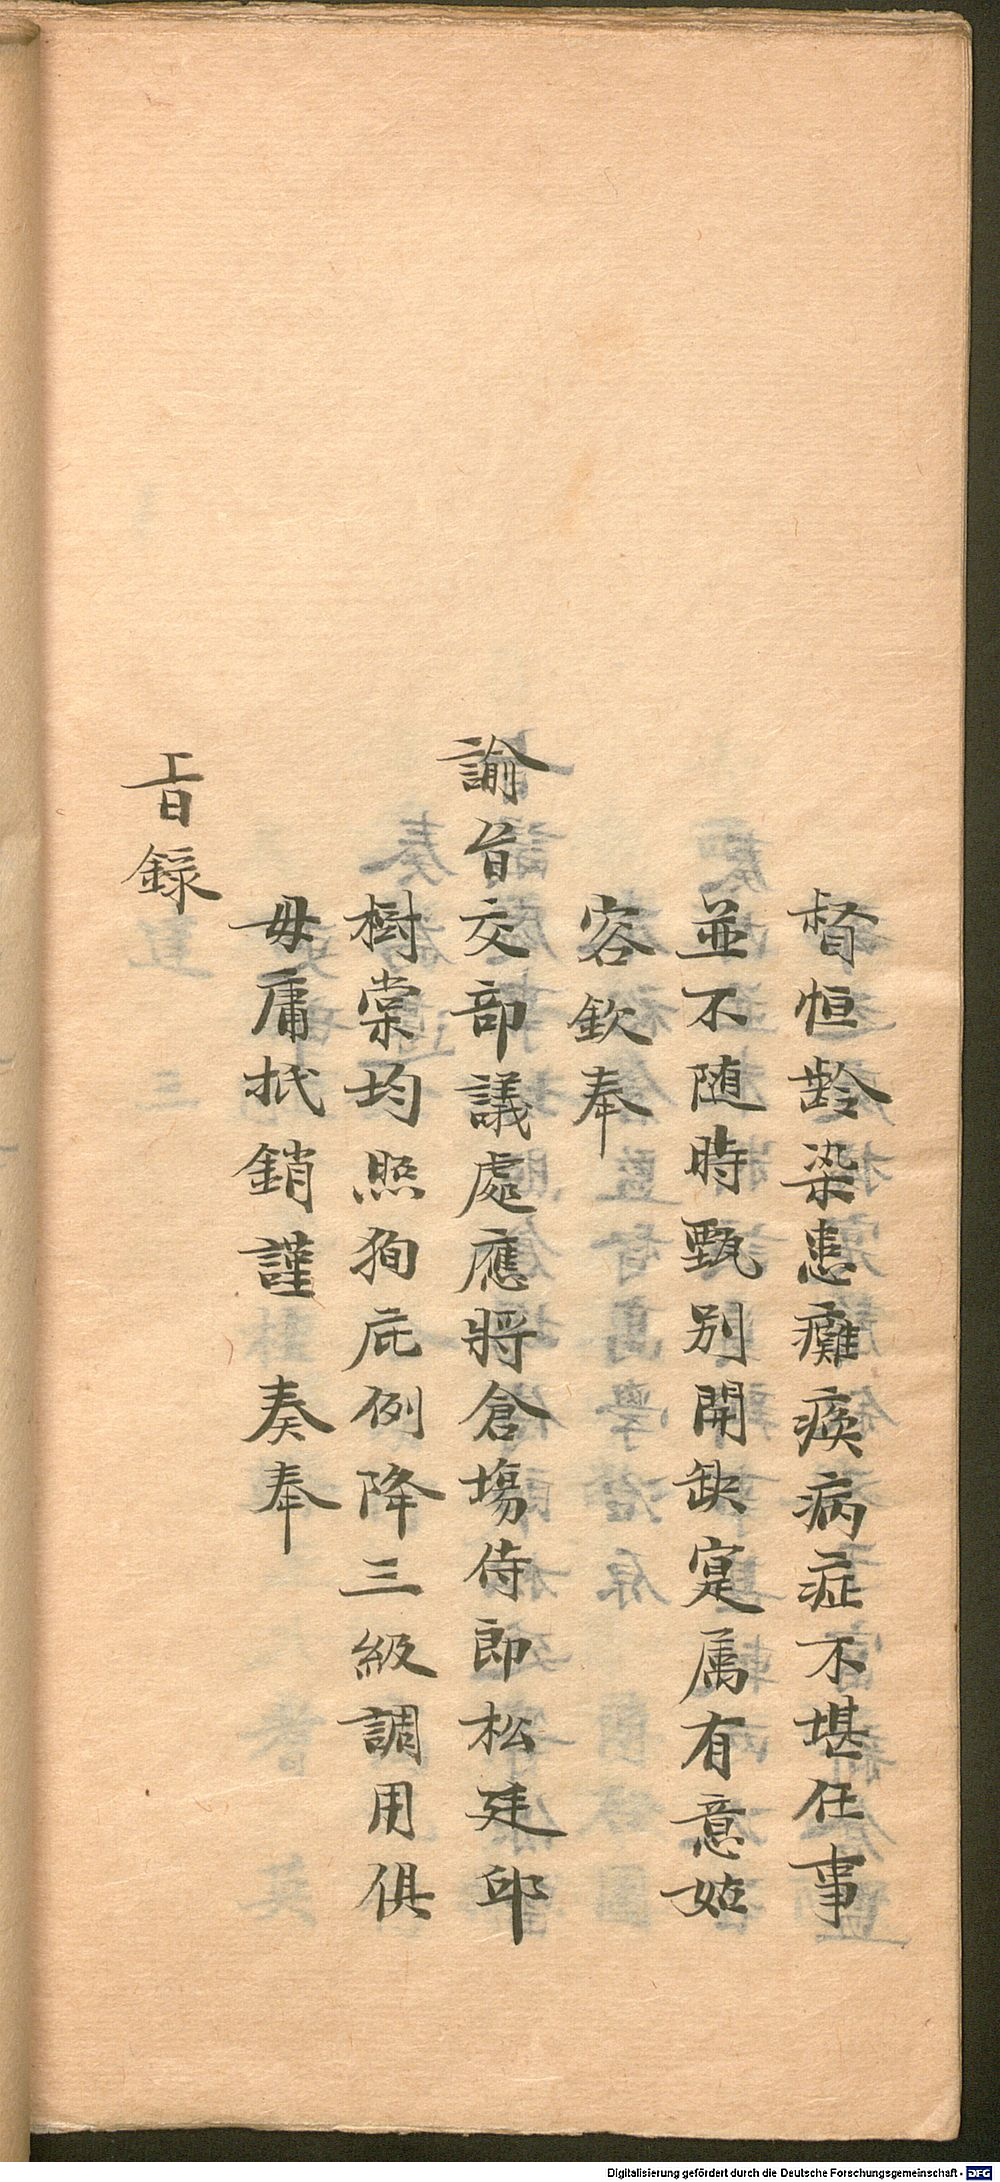 督恒齡染患癱瘓病症不堪任事
並不随時甄別開缺寔属有意姑
容欽奉
諭旨交部議處應將倉塲侍郎松廷邱
樹棠均照狥庇例降三級調用俱
毋庸抵銷謹 奏奉
旨録
Digitalisierung gefördert durch die Deutsche Forschungsgemeinschaft - DFG